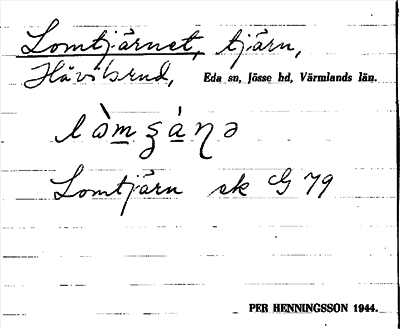 Lomtjärnet, tjärn,
Håvilsrud, Eda sn, Jösse hd, Värmlands län.
lòmʒànə
Lomtjärn ek G 79
PER HENNINGSSON 1944.